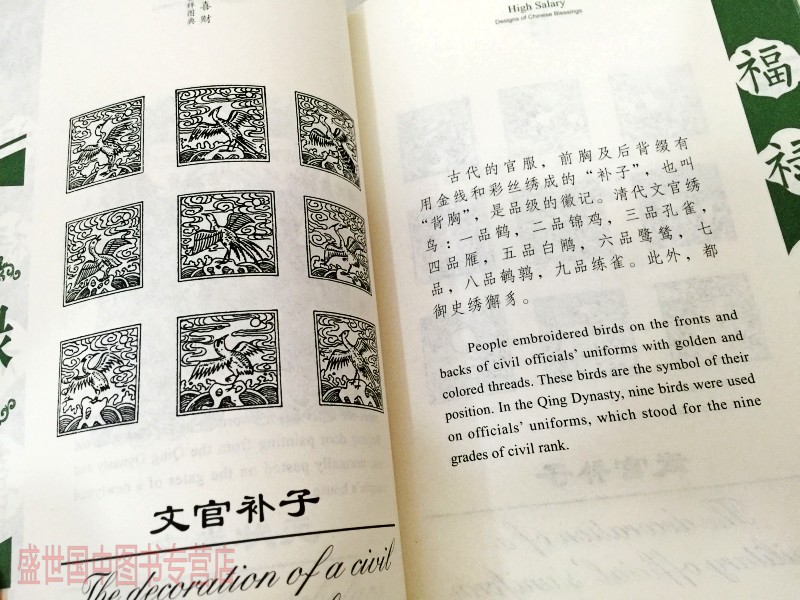 喜财
祥图典
文官补子
The decoration of a civil
High Salary
Designs of Chinese Blessings
古代的官服，前胸及后背缀有
用金线和彩丝绣成的“补子”，也叫
“背胸”，是品级的徽记。清代文官绣
鸟：一品鹤，二品锦鸡，三品孔雀，
四品雁，五品白鹇，六品鹭鸶，七
品，八品鹌鹑，九品练雀。此外，都
御史绣獬豸。
People embroidered birds on the fronts and
backs of civil officials' uniforms with golden and
colored threads. These birds are the symbol of their
position. In the Qing Dynasty, nine birds were used
on officials' uniforms, which stood for the nine
grades of civil rank.
福
禄
盛世国中图书专营店